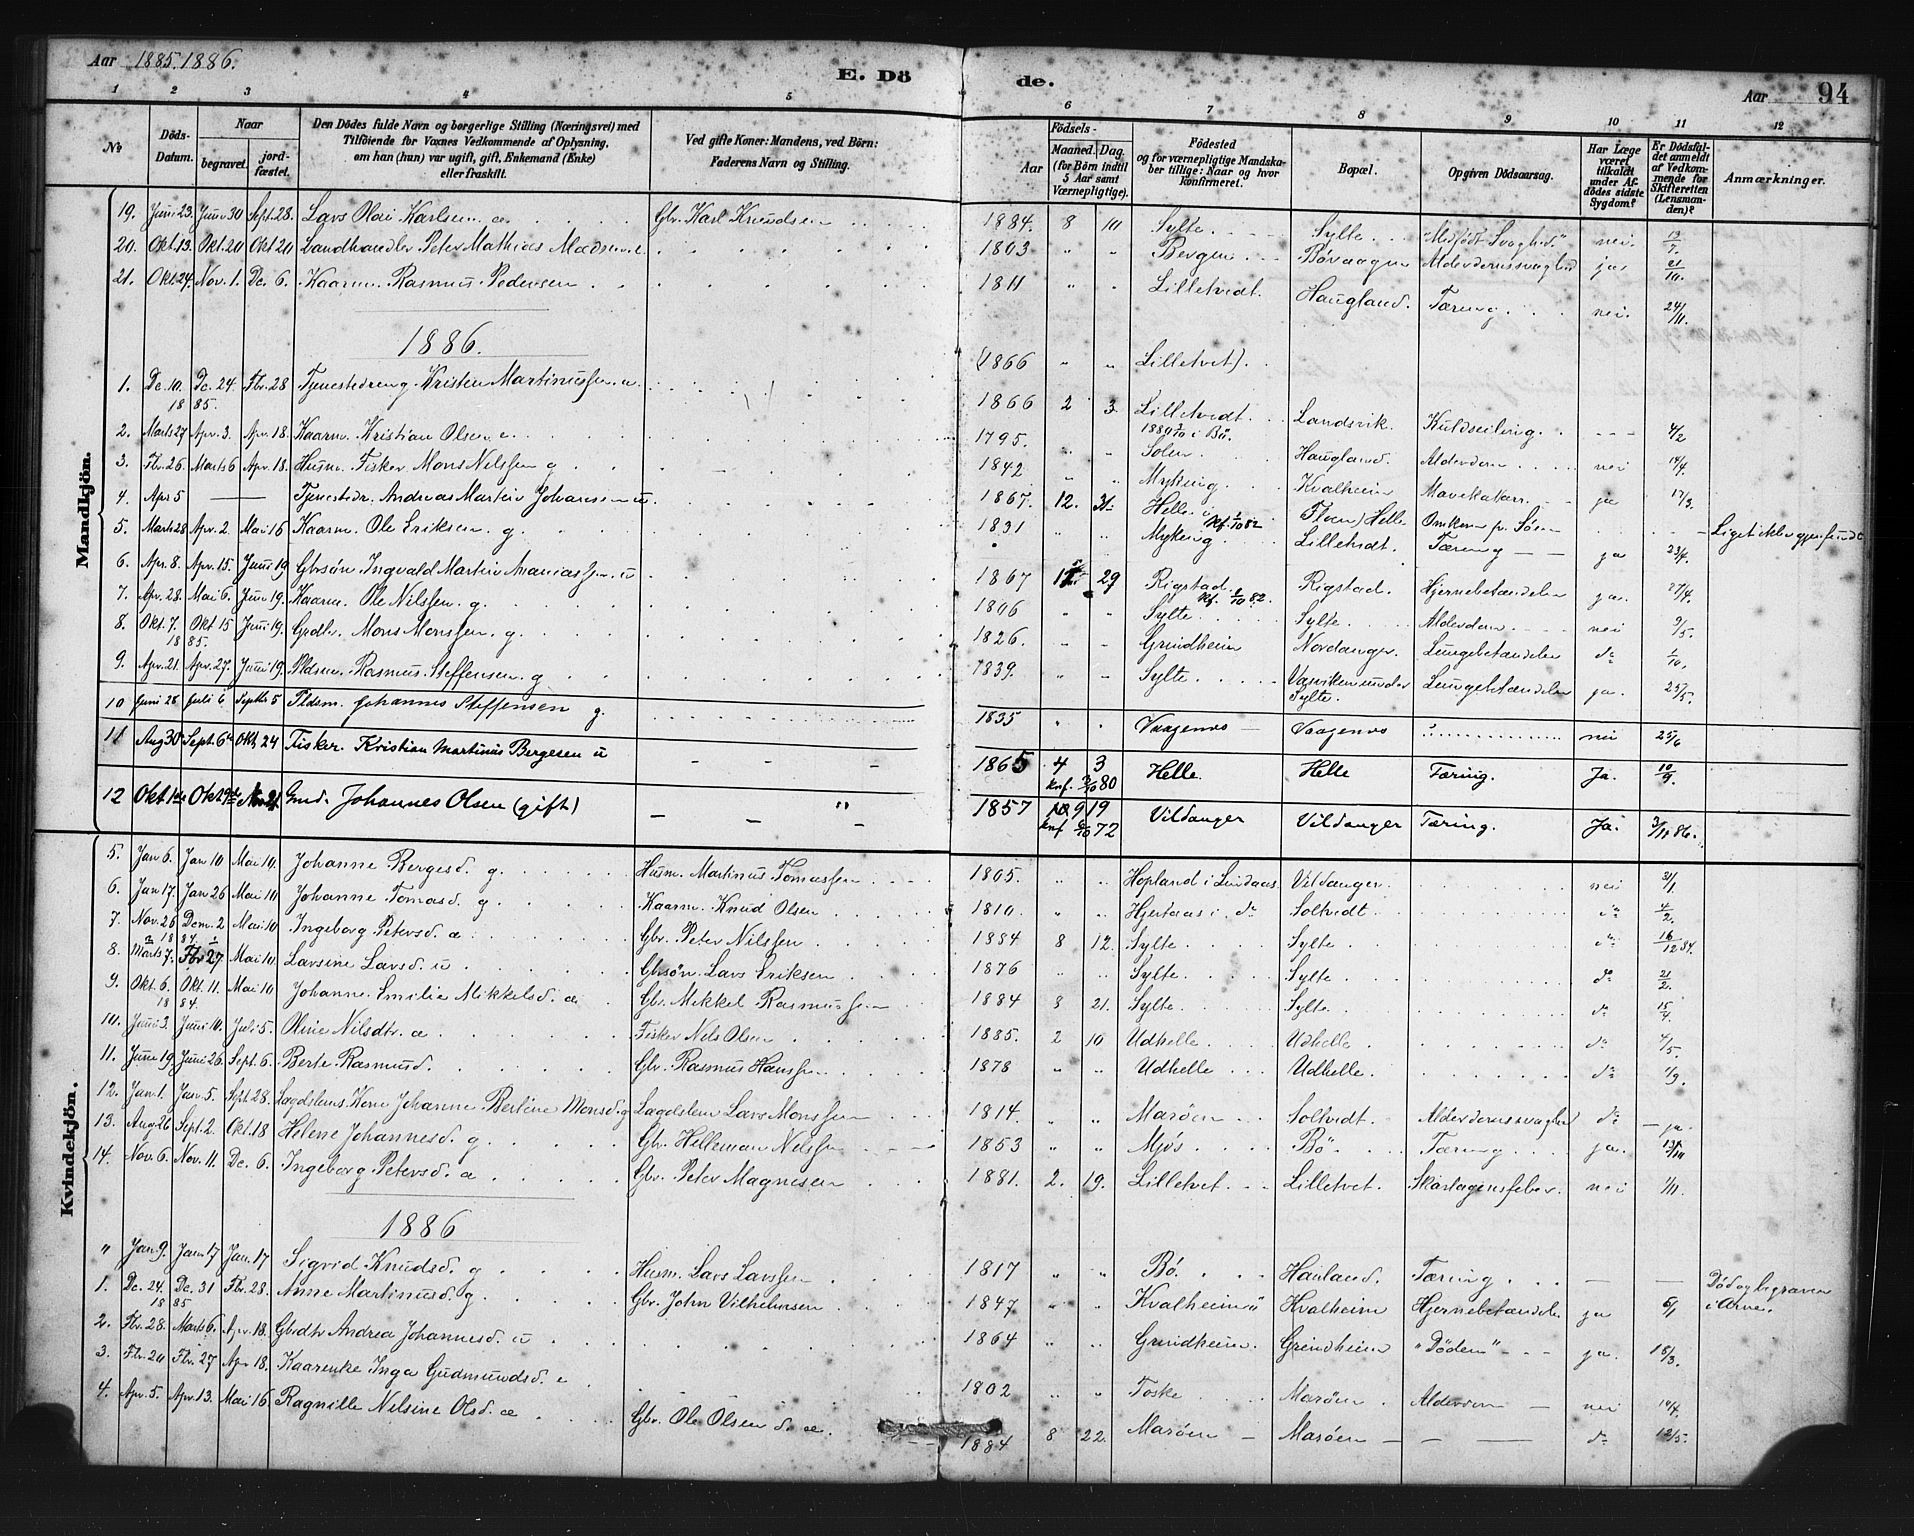 Aar 1885. 1886.
E. Dö de.
Aar 94
1 2 3 4 5 6 7 8 9 10 11 12
No
Döds-Datum.
Naar
begravet.
jord-fæstet.
Den Dödes fulde Navn og borgerlige Stilling (Næringsvei) med
Tilföiende for Voxnes Vedkommende af Oplysning,
om han (hun) var ugift, gift, Enkemand (Enke)
eller fraskilt.
Ved gifte Koner: Mandens, ved Börn:
Faderens Navn og Stilling.
Födsels-
Aar
Maaned. Dag.
(for Börn indtil
5 Aar samt
Værnepligtige).
Födested
og for værnepligtige Mandska-
ber tillige: Naar og hvor
konfirmeret.
Bopæl.
Opgiven Dödsaarsag.
Har Læge
været
tilkaldt
under Af-
dödes sidste
Sygdom?
Er Dödsfal-
det anmeldt
af Vedkom-
mende for
Skifteretten
(Lensman-
den)?
Anmærkninger.
Mandkjön.
19. Juni 23. Juni 30 Sept. 28. Lars Olai Karlsen æ Gbr. Karl Knudsen 1884 8 10 Sylte Sylte "Medfödt Svaghed" nei 13/7.
20. Okt. 13. Okt 20 Okt 20 Landhandler Peter Mathias Madsen e. 1803 " " Bergen Bövaagen Alderdomssvaghed ja 21/10.
21. Okt. 24. Nov. 1. De. 6. Kaarm. Rasmus Pedersen 1811 " " Lilletvedt. Haugland. Tæring nei. 24/11.
1886.
(1866 " " Lilletvet).
1. De. 10. De. 24. Fbr. 28 Tjenestedreng Kristen Martinussen u. 1866 2 3. Lilletvedt Landsvik. Kuldseiling - - - 4/2
1885. 1880 3/10 i Bö.
2. Marts 27 Apr. 3. Apr. 18. Kaarm. Kristian Olsen e. 1795. " " Solem Haugland. Alderdom nei 14/4.
3. Fbr. 26. Marts 6 Apr. 18. Husm. Fisker Mons Nilssen g 1842 " " Myking Kvalheim Mavekatarr. ja 17/3.
4. Apr 5 — Tjenestedr. Andreas Martin Johanssen u. 1867. 12. 31. Helle Kf. 1/10 82 Floen / Helle Omkom på Söen Liget ikke gjenfundet
5. Marts 28 Apr. 2. Mai 16 Kaarm. Ole Eriksen. g. 1831 " " Myking Lilletvdt. Tæring ja 23/4.
6. Apr. 8. Apr. 15. Juni 19 Gbrsön. Ingvald Martin Ananiassen u 1867 29 Rigstad. Kf. 1/10 82. Rigstad. Hjernebetændelse ja. 27/4.
7. Apr. 28. Mai 6. Juni 19. Kaarm. Ole Nilssen g. 1806 " " Sylte Sylte. Alderdom nei 9/5.
8. Okt. 7. Okt 15 Juni 19. Grdbr. Mons Monssen. g. 1826. " " Grindheim Nordanger. Lungebetændelse do 1/10.
1885.
9. Apr. 21. Apr. 27. Juni 19. Pldsm. Rasmus Steffensen g 1839. " " Sylte Vasviken under Sylte. Lungebetændelse ja. 25/5.
10 Juni 28 Juli 6 Septbr 5 Pldsm. Johannes Steffensen g. 1835 " " Vaagenes Vaagenes nei 25/6
11 Aug 30te Sept. 6te Okt. 24 Fisker. Kristian Martinus Bergesen u 1865 4 3 Helle. Helle Tæring. Ja. 10/9.
knf. 80
12 Okt 1ste Okt 9de Nov 21. Gmd. Johannes Olsen (gift) " 1857 9 19 Vildanger Vildanger Tæring. Ja. 3/11 86.
knf 6/10 72
Kvindekjön.
5. Jan 6. Jan 10 Mai 10. Johanne Bergesd. g. Husm. Martinus Tomassen 1805. " " Hopland i Lindaas Vildanger. nei 31/1.
6. Jan 17. Jan 26 Mai 10 Johanne Tomasd. g Kaarm. Knud Olsen 1810 " " Hjertaas i do Soltvedt. do 4/2.
7. Nov. 26 Dem. 2 Mai 10 Ingeborg Petersd. æ Gbr. Peter Nilssen 1884 8 12. Sylte Sylte. do 16/12 84.
1884
8. Marts 7. Fbr 27. Mai 10. Larsine Larsd. u Gbrsön. Lars Eriksen 1876 " " Sylte Sylte. do 21/2.
9. Okt. 6. Okt. 11. Mai 10 Johanne Emilie Mikkelsd. æ Gbr. Mikkel Rasmussen 1884 8 21. Sylte Sylte. do 15/4.
1884.
10. Juni 3. Juni 10. Juli 5. Oline Nilsdtr. æ Fisker Nils Olsen 1885. 2 10 Udhelle Udhelle. do 4/5.
11. June 19 Juni 26. Sept. 6. Berte Rasmusd. Gbr. Rasmus Hanssen 1878 " " Udhelle Udhelle. do 1/9.
12. Jan. 1. Jan. 5. Sept. 28. Lægdslems. Kone Johanne Bertine Monsd. g Lægdslem Lars Monssen 1814. " " Maröen Soltvidt. Alderdomssvaghed do — ja.
13. Aug 26 Sept. 2. Okt. 18 Helene Johannesd. g Gbr. Helleman Nilssen 1853 " " Mjös Bö Tæring ja. 13/11
14. Nov. 6. Nov. 11. De. 6. Ingeborg Petersd. æ Gbr. Peter Magnesen 1881. 2. 19. Lilletvet. Lilletvet. Skarlagensfeber. nei 1/11.
1886
" Jan. 9. Jan. 17 Jan. 17 Sigvid Knudsd. g Husm. Lars Larssen 1817 " " Bö. Hauland. Tæring — — Död og begraven i Arne.
1. De. 24. De. 31 Fbr. 28. Anne Martinusd. g Gbr. John Vilhelmsen 1847 " " Kvalheim Kvalheim Hjernebetændelse ja 6/1
1885
2. Fbr. 28. Marts 6. Apr. 18. Gbrdtr Andrea Johannesd. u 1864 " " Grindheim. Grindheim "Döden" ja. 15/3.
3. Fbr. 20 Fbr. 27 Apr. 18. Kaarenke Inga Gudmundsd. e 1802 " " Foske Maröen. Alderdom nei 10/4.
4. Apr. 5. Apr. 13. Mai 16 Ragnille Nilsine Olsd. æ Gbr. Ole Olsen d. æ. 1884 8 22. Maröen Maröen do 12/5.